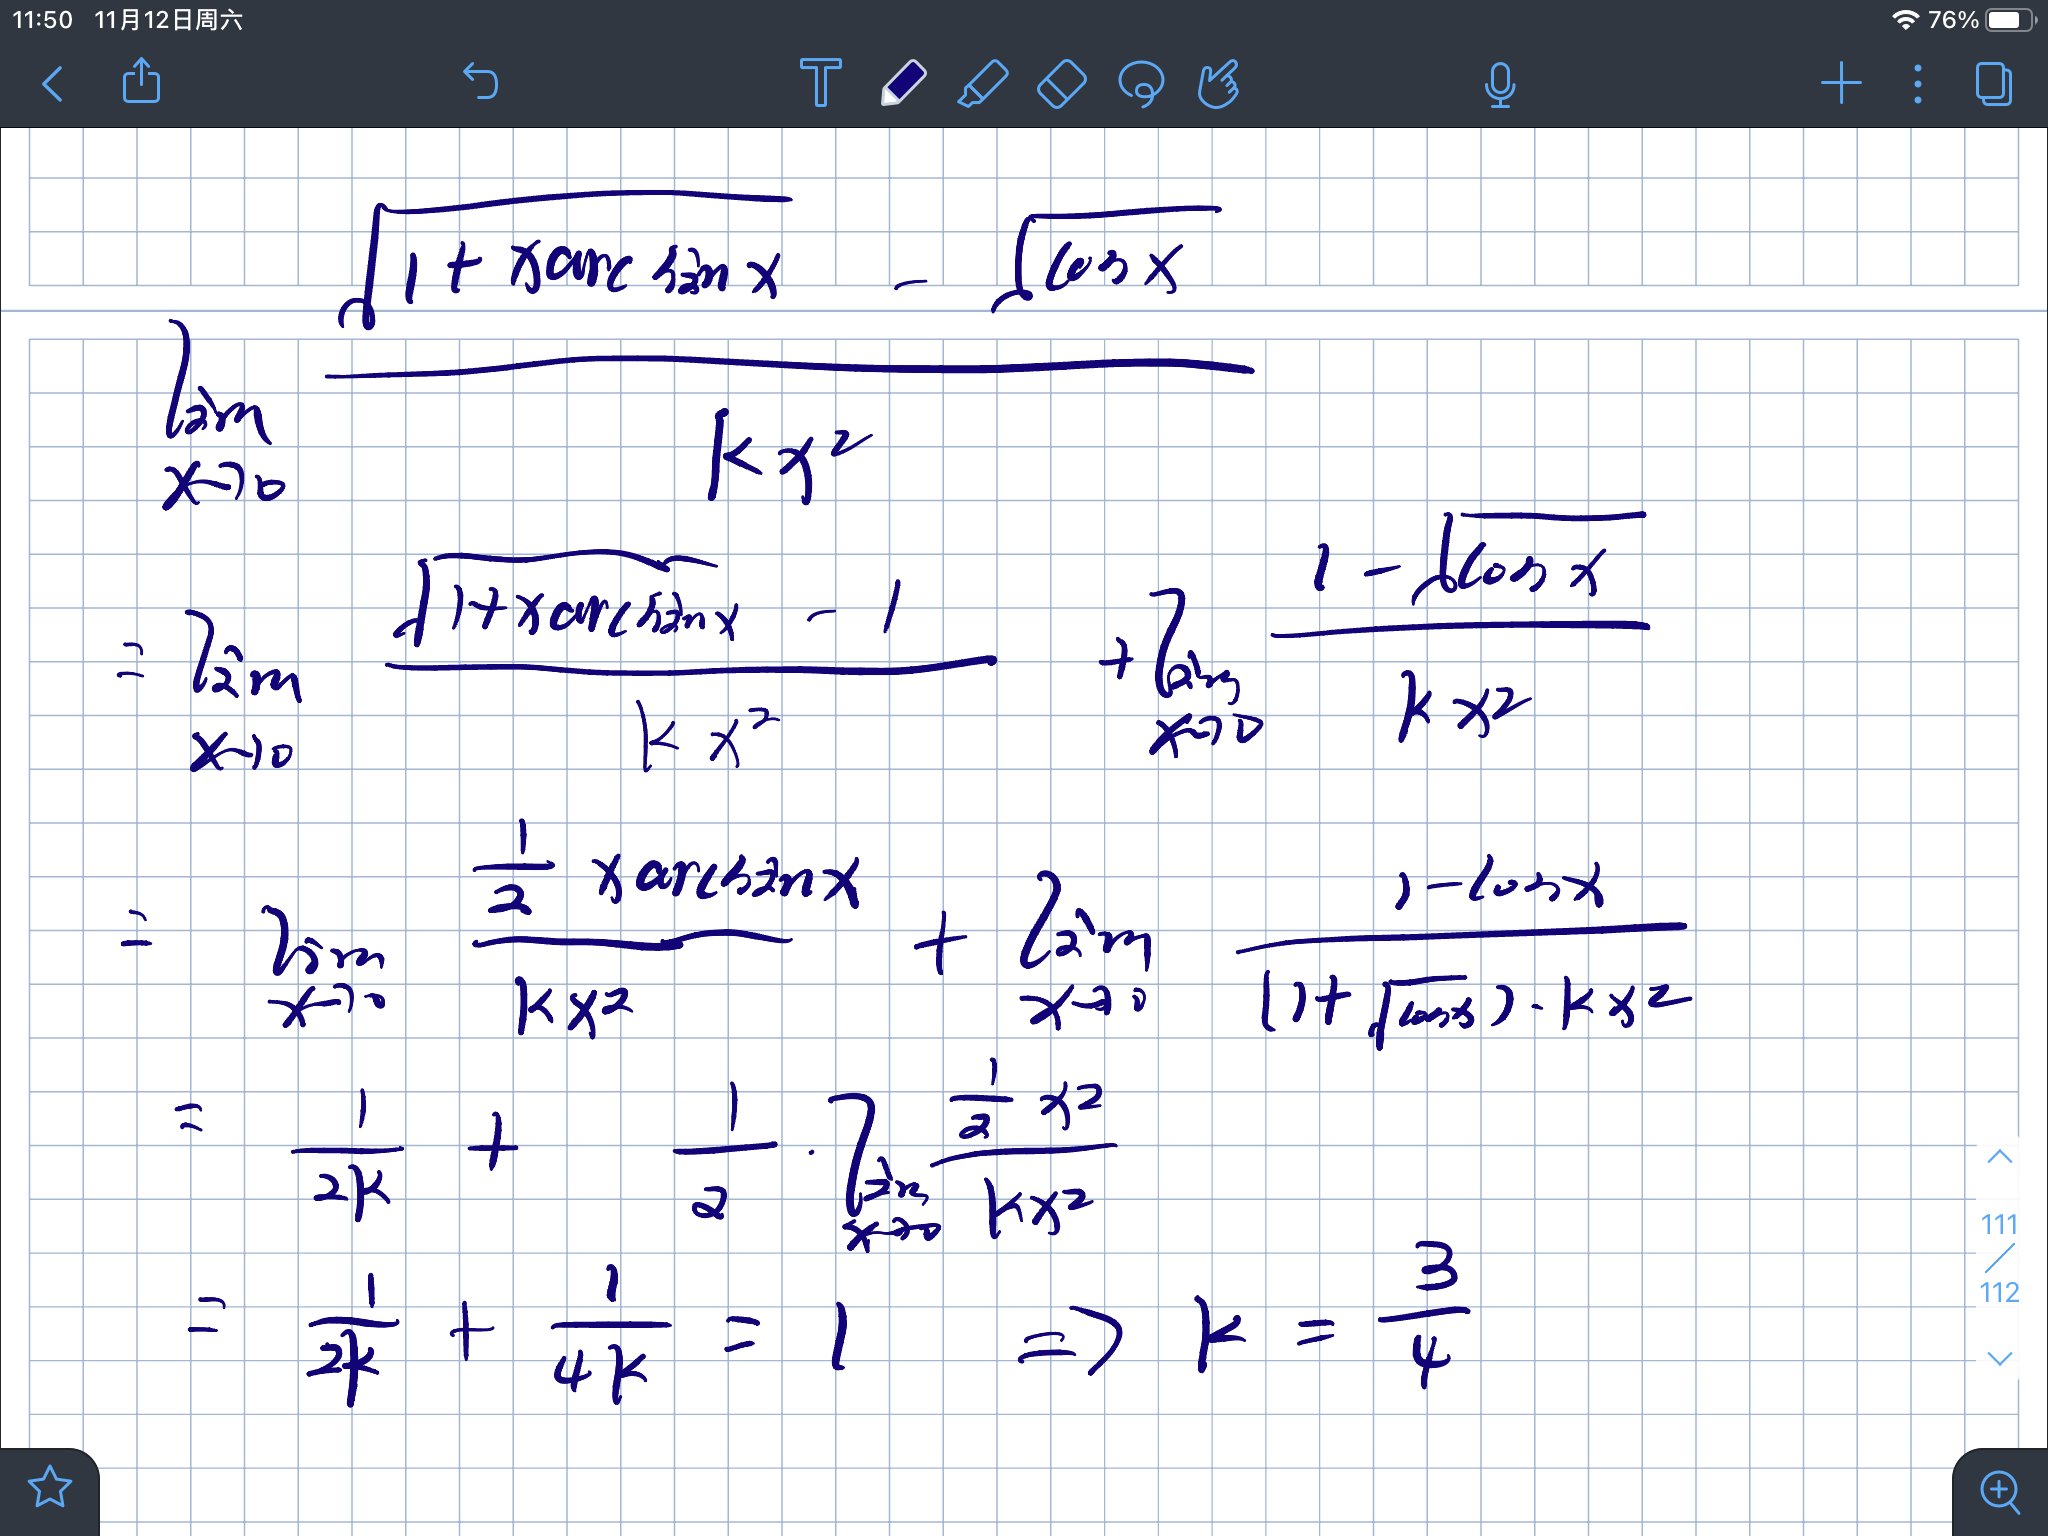 11:50 11月12日周六 76%
√(1 + x arcsin x) - √(cos x)
lim
x→0
kx²
= lim x→0 (√(1 + x arcsin x) - 1) / (kx²) + lim x→0 (1 - √(cos x)) / (kx²)
= lim x→0 (1/2 x arcsin x) / (kx²) + lim x→0 (1 - cos x) / ((1 + √(cos x)) · kx²)
= 1/(2k) + 1/2 · lim x→0 (1/2 x²) / (kx²)
= 1/(2k) + 1/(4k) = 1 ⇒ k = 3/4
111
/
112